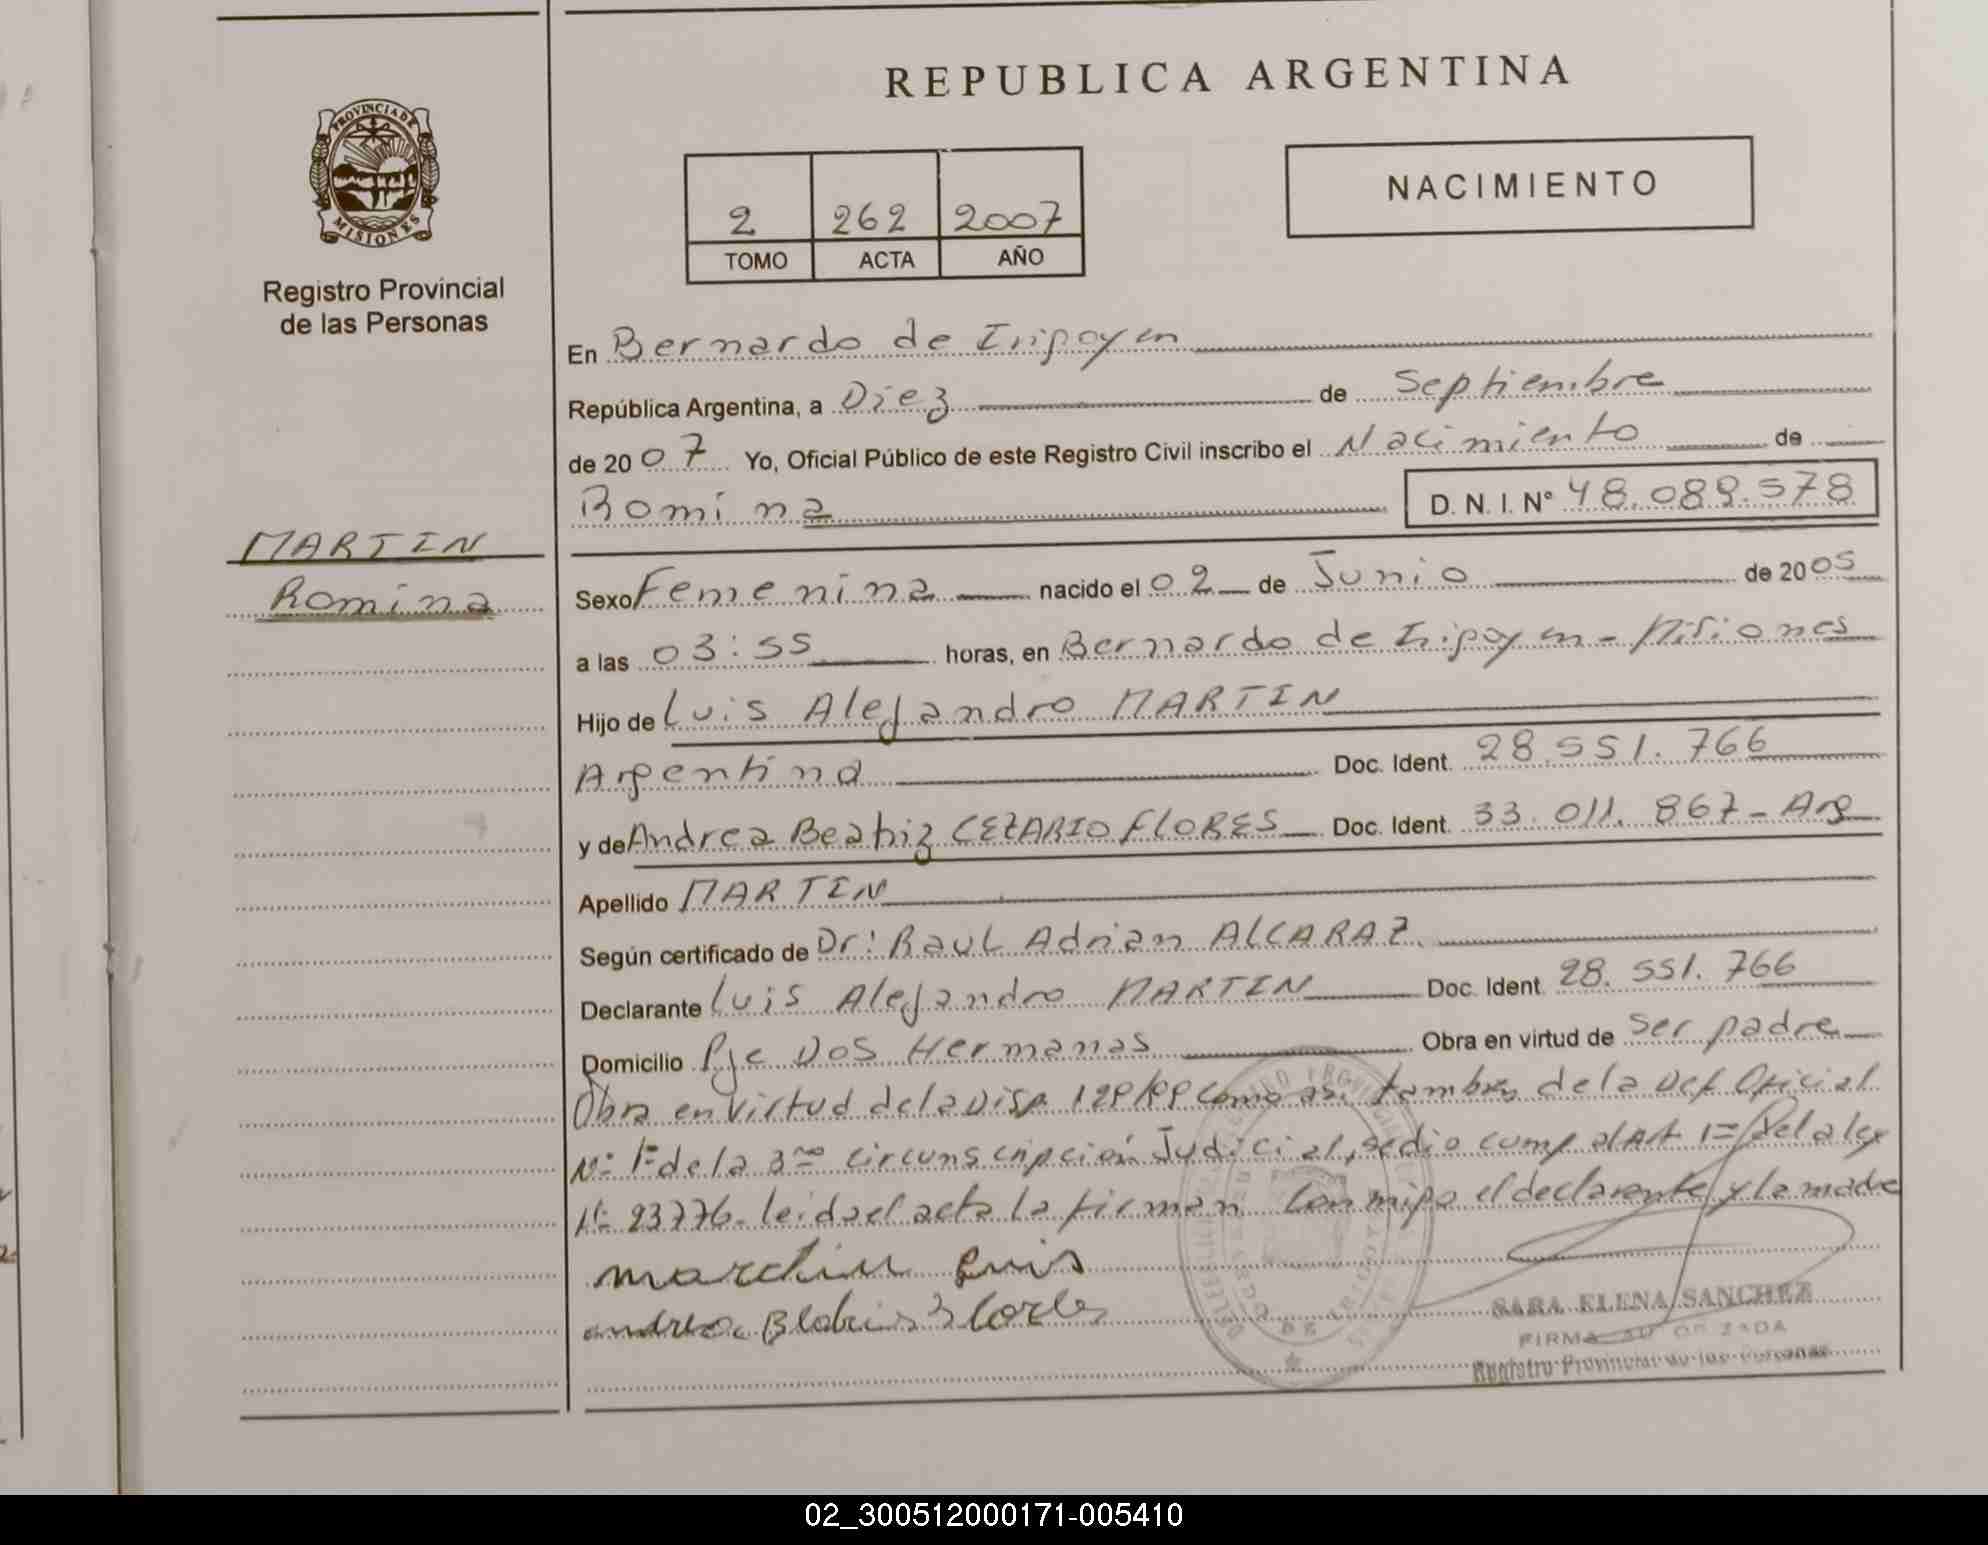 PROVINCIA DE
MISIONES
Registro Provincial
de las Personas
MARTIN
Romina
REPUBLICA ARGENTINA
NACIMIENTO
2 262 2007
TOMO ACTA AÑO
En Bernardo de Irigoyen
República Argentina, a Diez de Septiembre
de 2007 Yo, Oficial Público de este Registro Civil inscribo el Nacimiento de
Romina D. N. I. Nº 48.089.578
Sexo Femenina nacido el 02 de Junio de 2005
a las 03:55 horas, en Bernardo de Irigoyen - Misiones
Hijo de Luis Alejandro MARTIN
Argentina Doc. Ident. 28.551.766
y de Andrea Beatriz CEZARIO FLORES Doc. Ident. 33.011.867 - Arg
Apellido MARTIN
Según certificado de Dr: Raul Adrian ALCARAZ
Declarante Luis Alejandro MARTIN Doc. Ident. 28.551.766
Domicilio Pje Dos Hermanas Obra en virtud de ser padre
Obra en virtud de la Disp. como asi tambien de la Def. Oficial
Nº 1º de la 3ra circunscripción Judicial, se dio cump al Art 1º de la ley
Nº 23776. leida el acta la firman conmigo el declarante y la madre
martin luis
SARA ELENA SANCHEZ
FIRMA AUTORIZADA
Registro Provincial de las Personas
02_300512000171-005410